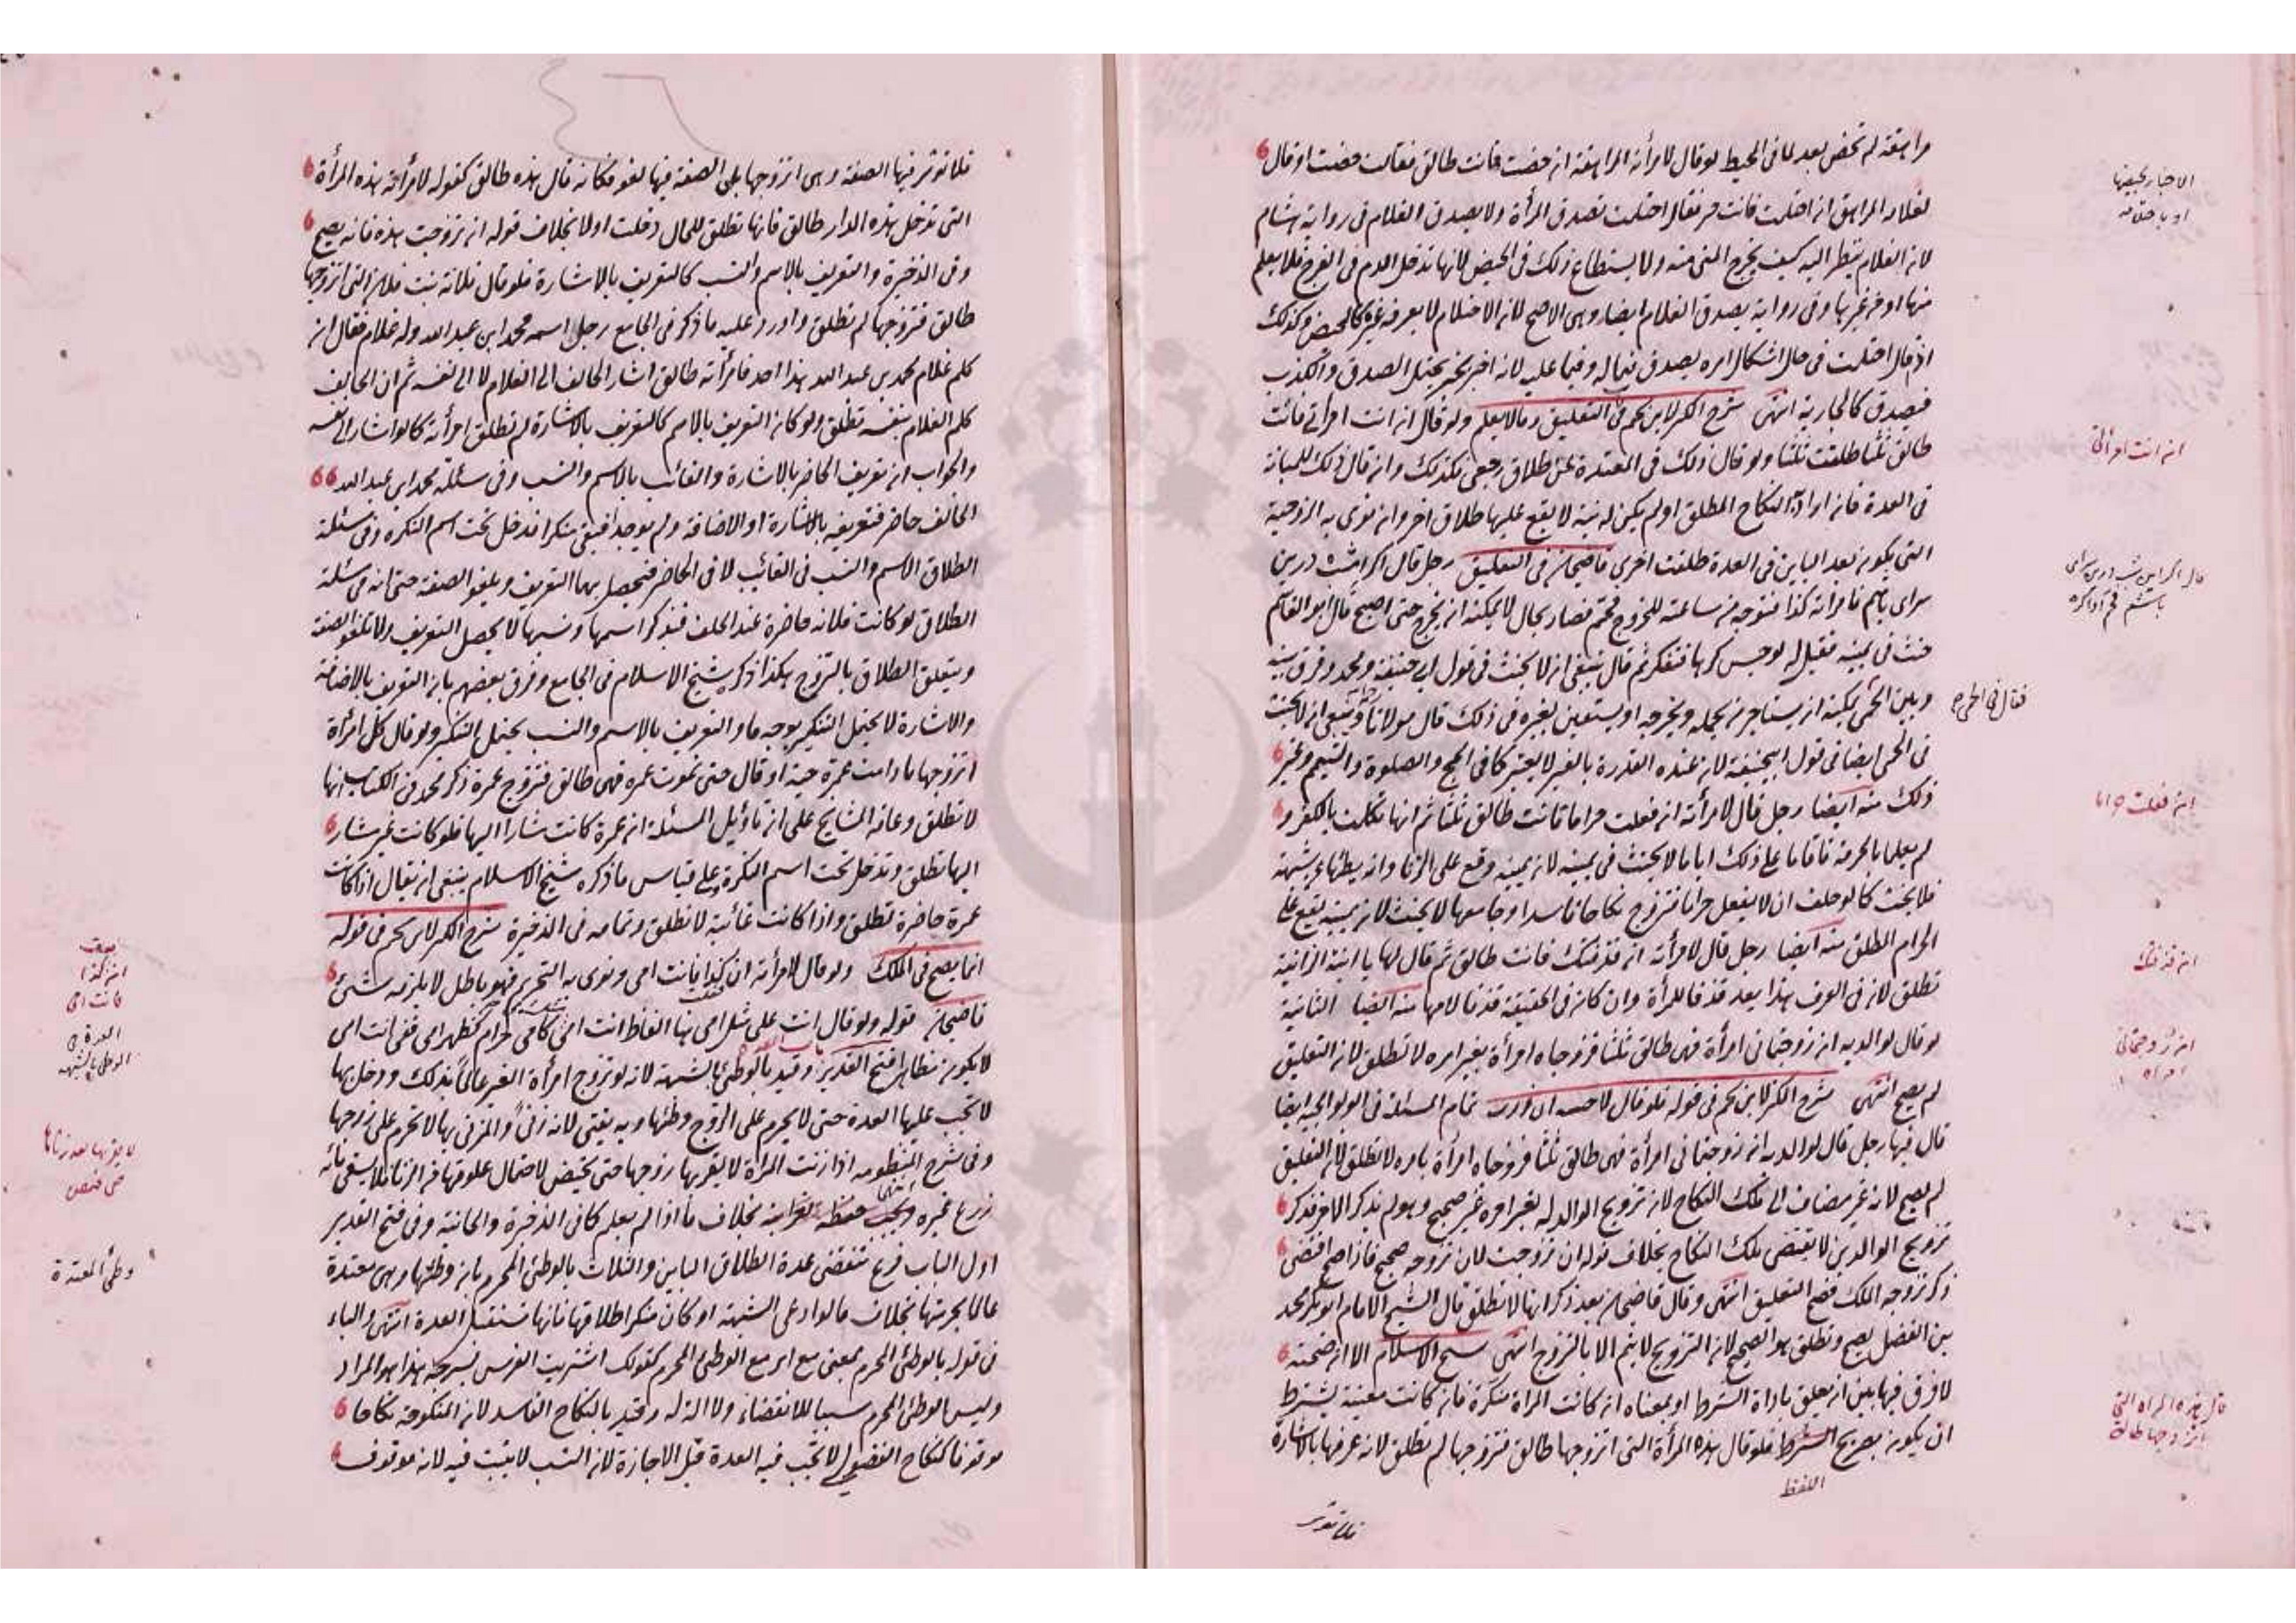 مراهقة لم تحض بعد لما في المحيط لو قال لامرأته المراهقة ان حضت فانت طالق فقالت حضت او قال
لغلامه المراهق ان احتلمت فانت حر فقال احتلمت تصدق المرأة ولا يصدق الغلام في رواية هشام
لان الغلام ينظر اليه كيف يخرج المني منه ولا يستطاع ذلك في الحيض لانها تدخل الدم في الفرج فلا يعلم
منها او من غيرها وفي رواية يصدق الغلام ايضا وهي الاصح لان الاحتلام لا يعرفه غيره كالحيض وكذلك
اذ قال احتلمت في حال اشكال امره يصدق فيما له وفيما عليه لانه اخبر بخبر يحتمل الصدق والكذب
فيصدق كالجارية انتهى شرح الكنز لابن نجيم في التعليق وما لا يعلم ولو قال ان انت امرأتي فانت
طالق ثلثا طلقت ثلثا ولو قال ذلك في المعتدة عن طلاق رجعي فكذلك وان قال ذلك للمبانة
في العدة فان اراد به النكاح المطلق او لم يكن له نية لا يقع عليها طلاق اخر وان نوى به الزوجية
التي يكون بعد الباين في العدة طلقت اخرى قاضيخان في التعليق رجل قال اكر امشب درين
سراى باشم فامرأته كذا فتوجه من ساعته للخروج فحم فصار بحال لا يمكنه ان يخرج حتى اصبح قال ابو القاسم
حنث في يمينه فقيل له لو حبس كرها فتفكر ثم قال ينبغي ان لا يحنث في قول ابي حنيفة ومحمد وفرق بينه
وبين الحمى يمكنه ان يستاجر من يحمله ويخرجه او يستعين بغيره في ذلك قال مولانا وينبغي ان لا يحنث
في الحمى ايضا في قول ابيحنيفة لان عنده القدرة بالغير لا يعتبر كما في الحج والصلوة والتيمم وغير
ذلك منه ايضا رجل قال لامرأته ان فعلت حراما فانت طالق ثلثا ثم انها تكلمت بالكفر و
لم يعلما بالحرمة فاقاما على ذلك اياما لا يحنث في يمينه لان يمينه وقع على الزنا وانه يطئها بشبهة
فلا يحنث كما لو حلف ان لا يفعل حراما فتزوج نكاحا فاسدا وجامعها لا يحنث لان يمينه يقع على
الحرام المطلق منه ايضا رجل قال لامرأته ان قذفتك فانت طالق ثم قال لها يا ابنة الزانية
تطلق لان في العرف بهذا يعد قذفا للمرأة وان كان في الحقيقة قذفا لامها منه ايضا الثانية
لو قال لوالديه ان زوجتماني امرأة فهي طالق ثلثا فزوجاه امرأة بغير امره لا تطلق لان التعليق
لم يصح انتهى شرح الكنز لابن نجيم في قوله فلو قال لاجنبية ان زرت تمام المسئلة في الولوالجية ايضا
قال فيها رجل قال لوالديه ان زوجتماني امرأة فهي طالق ثلثا فزوجاه امرأة بامره لا تطلق لان التعليق
لم يصح لانه غير مضاف الى ملك النكاح لان تزويج الوالد له بغير امره غير صحيح وهو لم يذكر الامر فذكر
تزويج الوالدين لا يقتضي ملك النكاح بخلاف قوله ان تزوجت لان تزوجه صحيح فاذا صح اقتضى
ذكر تزوجه الملك فصح التعليق انتهى وقال قاضيخان بعد ذكر انها لا تطلق قال الشيخ الامام ابو بكر محمد
بن الفضل يصح وتطلق هو الصحيح لان التزويج لا يتم الا بالتزوج انتهى شيخ الاسلام الا ان صحته
لا فرق فيها بين ان يعلق باداة الشرط او بمعناه ان كانت المراة منكرة فان كانت معينة يشترط
ان يكون بصريح الشرط فلو قال هذه المرأة التي اتزوجها طالق فتزوجها لم تطلق لانه عرفها بالاشارة
اللفظ
فلا تؤثر
الاخبار بحيضها
او باحتلامه
ان انت امرأتي
قال اكر امشب درين سراى
باشم فحم
فقال في الحمى
ان فعلت حراما
ان قذفتك
ان زوجتماني
امرأة
قال هذه المراة التي
اتزوجها طالق
فلا تؤثر فيها الصفة وهي اتزوجها بل الصفة فيها لغو فكانه قال هذه طالق كقوله لامرأته هذه المرأة
التي تدخل هذه الدار طالق فانها تطلق للحال دخلت او لا بخلاف قوله ان تزوجت هذه فانه يصح
وفي الذخيرة والتعريف بالاسم والنسب كالتعريف بالاشارة فلو قال فلانة بنت فلان التي اتزوجها
طالق فتزوجها لم تطلق واورد عليه ما ذكر في الجامع رجل اسمه محمد ابن عبد الله وله غلام فقال ان
كلم غلام محمد بن عبد الله هذا احد فامرأته طالق اشار الحالف الى الغلام لا الى نفسه ثم ان الحالف
كلم الغلام بنفسه تطلق ولو كان التعريف بالاسم كالتعريف بالاشارة لم تطلق امرأته كما لو اشار الى نفسه
والجواب ان تعريف الحاضر بالاشارة والغائب بالاسم والنسب وفي مسئلة محمد ابن عبد الله
الحالف حاضر فتعريفه بالاشارة او الاضافة ولم يوجد فبقي منكرا فدخل تحت اسم النكرة وفي مسئلة
الطلاق الاسم والنسب في الغائب لا في الحاضر فيحصل بهما التعريف ويلغو الصفة حتى انه في مسئلة
الطلاق لو كانت فلانة حاضرة عند الحلف فبذكر اسمها ونسبها لا يحصل التعريف ولا تلغو الصفة
ويتعلق الطلاق بالتزوج هكذا ذكره شيخ الاسلام في الجامع وفرق بعضهم بان التعريف بالاضافة
والاشارة لا يحتمل التنكير بوجه ما والتعريف بالاسم والنسب يحتمل التنكير ولو قال كل امرأة
اتزوجها ما دامت عمرة حية او قال حتى تموت عمرة فهي طالق فتزوج عمرة ذكر محمد في الكتاب انها
لا تطلق وعامة المشايخ على ان تاويل المسئلة ان عمرة كانت مشارا اليها فلو كانت غير مشار
اليها تطلق وتدخل تحت اسم النكرة وعلى قياس ما ذكره شيخ الاسلام ينبغي ان يقال اذا كانت
عمرة حاضرة تطلق واذا كانت غائبة لا تطلق وتمامه في الذخيرة شرح الكنز لابن نجيم في قوله
انما يصح في الملك ولو قال لامرأته ان كذا فانت امي ونوى به التحريم فهو باطل لا يلزمه شئ
قاضيخان قوله ولو قال انت علي مثل امي هنا الفاظ انت امي كامي حرام كظهر امي ففي انت امي
لا يكون مظاهرا فتح القدير وقيد بالوطئ بالشبهة لانه لو تزوج امرأة الغير عالما بذلك ودخل بها
لا تجب عليها العدة حتى لا يحرم على الزوج وطئها وبه يفتي لانه زنى والمزني بها لا تحرم على زوجها
وفي شرح المنظومة اذا زنت المرأة لا يقربها زوجها حتى تحيض لاحتمال علوقها من الزنا فلا يسقي مائه
زرع غيره ويجب حفظه لغرابته انتهى بخلاف ما اذا لم يعلم كما في الذخيرة والخانية وفي فتح القدير
اول الباب فرع تنقضي عدة الطلاق الباين والثلاث بالوطئ المحرم بان وطئها وهي معتدة
عالما بحرمتها بخلاف ما لو ادعى الشبهة او كان منكرا طلاقها فانها تستقبل العدة انتهى والباء
في قوله بالوطئ المحرم بمعنى مع اي مع الوطئ المحرم كقولك اشتريت الفرس بسرجه هذا هو المراد
وليس الوطئ المحرم سببا للانقضاء ولا الة له وقيد بالنكاح الفاسد لان المنكوحة نكاحا
موقوفا كنكاح الفضولي لا تجب فيه العدة قبل الاجازة لان النسب لا يثبت فيه لانه موقوف
ان كذا
فانت امي
العدة في
الوطئ بالشبهة
لا يقربها بعد زناها
حتى تحيض
وطئ المعتدة